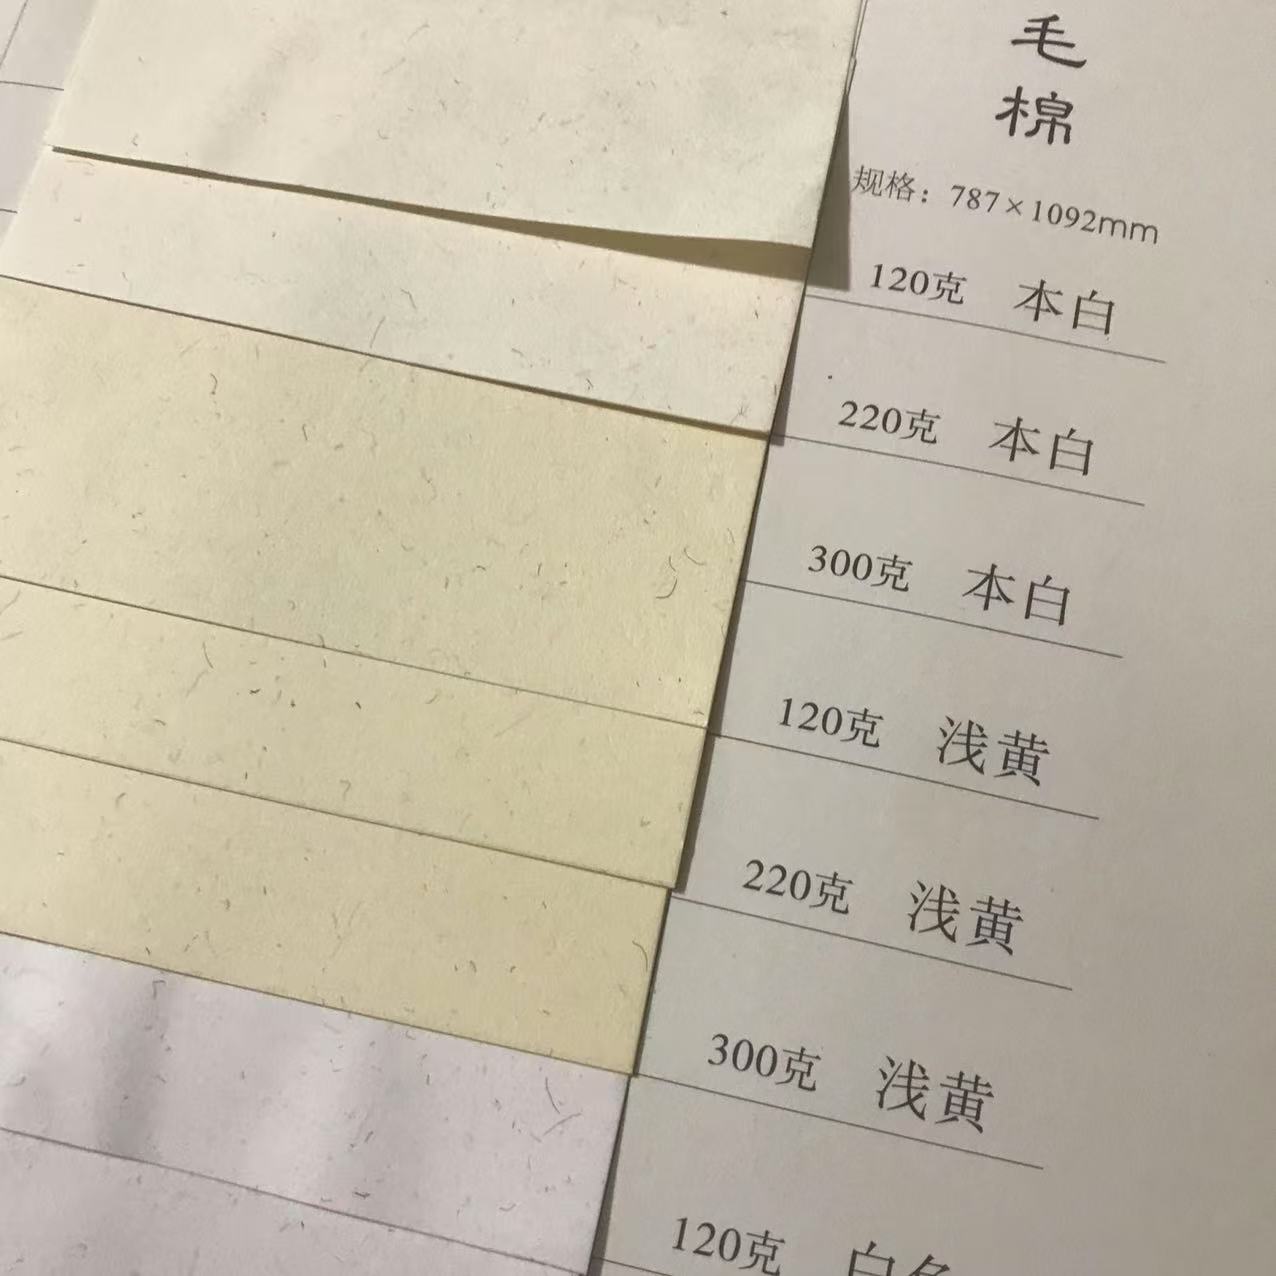 毛
棉
规格：787×1092mm
120克 本白
220克 本白
300克 本白
120克 浅黄
220克 浅黄
300克 浅黄
120克 白色